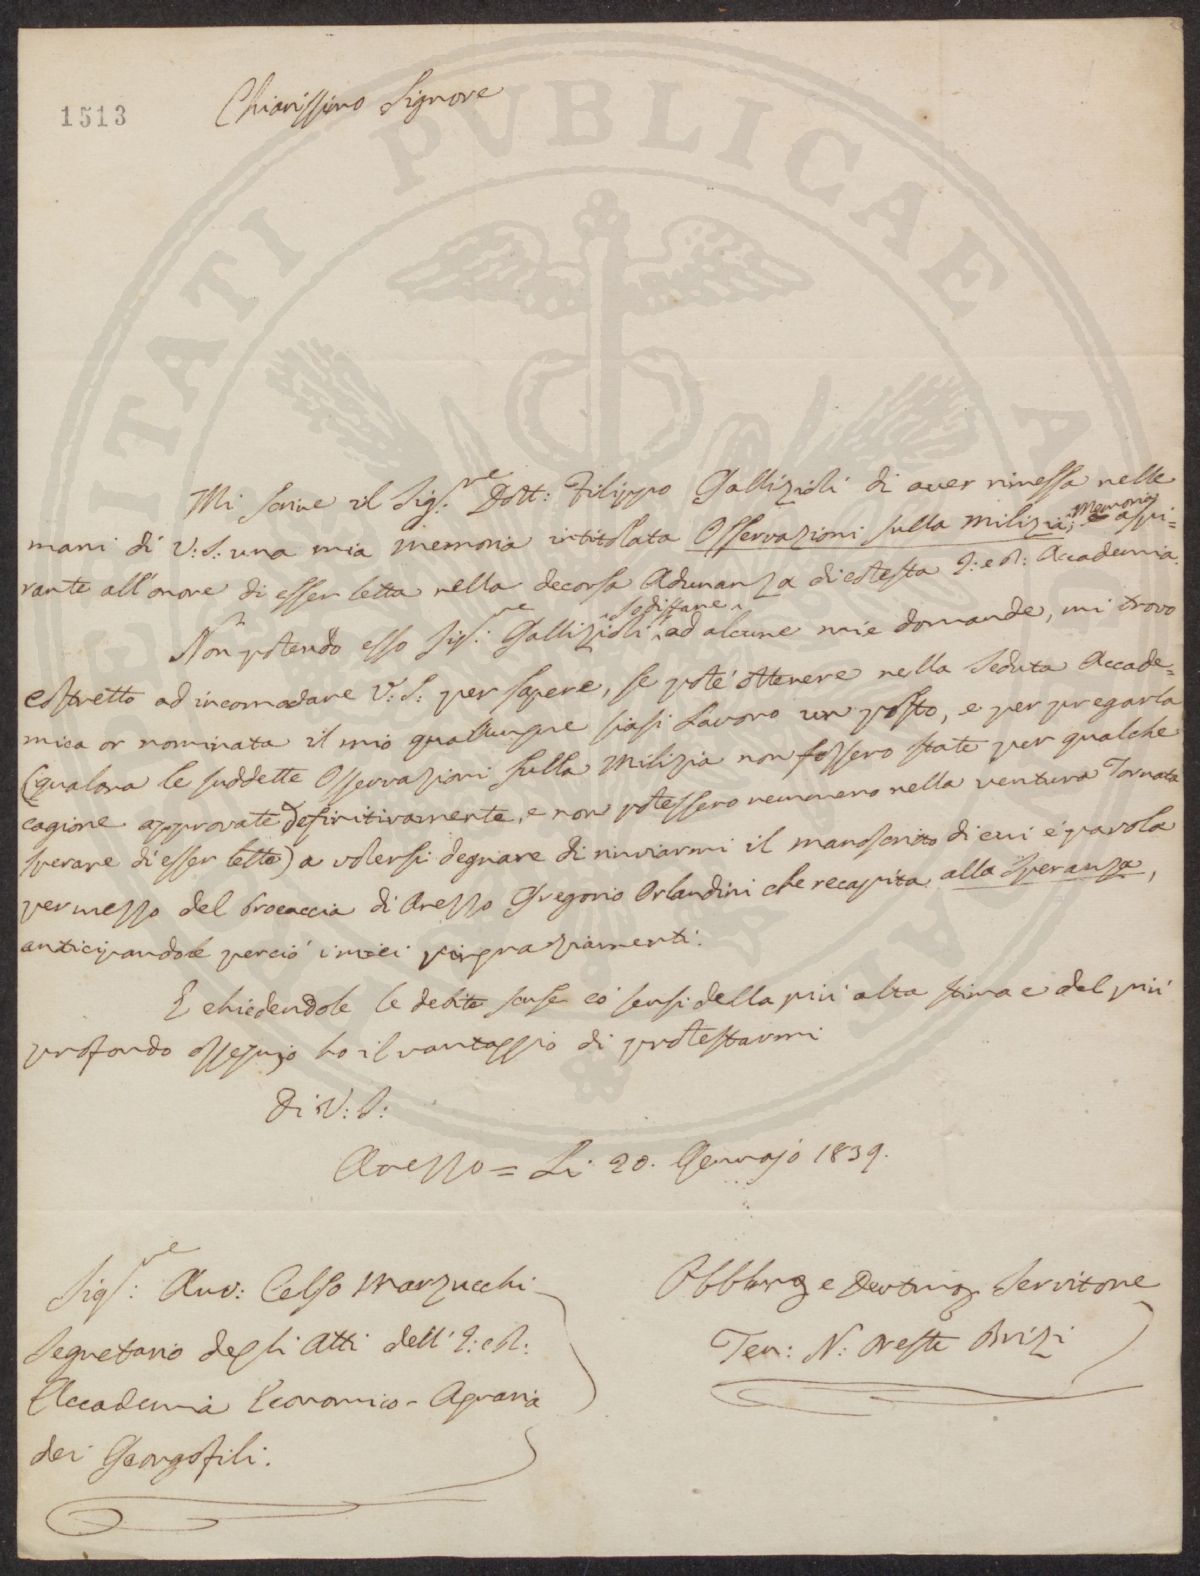 PROSPERITATI PVBLICAE AVGENDAE
1513
Chiarissimo Signore
Mi scrive il Sig.re Dott: Filippo Gallizioli di aver rimessa nelle
mani di V:S: una mia memoria intitolata Osservazioni sulla Milizia; memoria aspi=
rante all'onore di esser letta nella decorsa Adunanza di codesta I: e R: Accademia.
Non potendo esso Sig.re Gallizioli sodisfare ad alcune mie domande, mi trovo
costretto ad incomodare V:S: per sapere, se poté ottenere nella Seduta Accade=
mica or nominata il mio qualunque siasi Lavoro un posto, e per pregarla
(qualora le suddette Osservazioni sulla Milizia non fossero state per qualche
cagione approvate definitivamente, e non potessero nemmeno nella ventura Tornata
sperare di esser lette) a volersi degnare di rinviarmi il manoscritto di cui è parola
per mezzo del Procaccia di Arezzo Gregorio Orlandini che recapita alla Speranza,
anticipandole perciò i miei ringraziamenti.
E chiedendole le debite scuse co' sensi della più alta stima e del più
profondo ossequio ho il vantaggio di protestarmi
Di V: S:
Arezzo = Li 20. Gennajo 1839.
Sig.re: Avv: Celso Marzucchi
Segretario degli Atti dell'I: e R:
Accademia Economico-Agraria
dei Georgofili.
Obblmo e Devtmo Servitore
Ten: N: Oreste Brizi